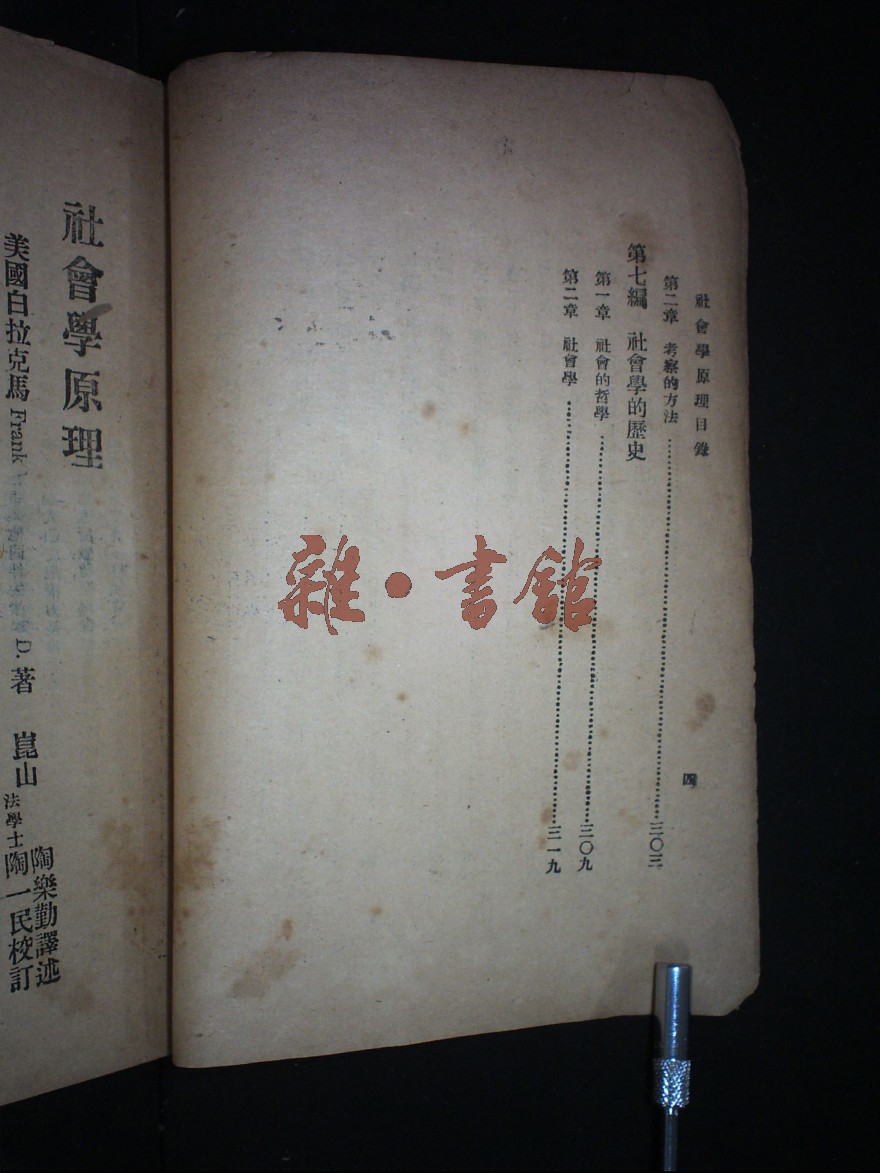 社會學原理目錄
四
第二章 考察的方法……三〇三
第七編 社會學的歷史
第一章 社會的哲學……三〇九
第二章 社會學……三一九
社會學原理
美國白拉克馬 Frank D. 著 崑山 陶樂勤譯述
法學士 陶一民校訂
雜·書館